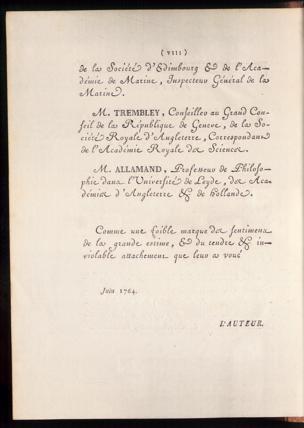 ( VIII )
de la Société d'Edimbourg & de l'Aca-
démie de Marine, Inspecteur Général de la
Marine.
M. TREMBLEY, Conseiller au Grand Con-
seil de la République de Geneve, de la So-
ciété Royale d'Angleterre, Correspondant
de l'Académie Royale des Sciences.
M. ALLAMAND, Professeur de Philoso-
phie dans l'Université de Leyde, des Aca-
démies d'Angleterre & de Hollande.
Comme une foible marque des sentimens
de la grande estime, & du tendre & in-
violable attachement que leur a voué
Juin 1764.
L'AUTEUR.